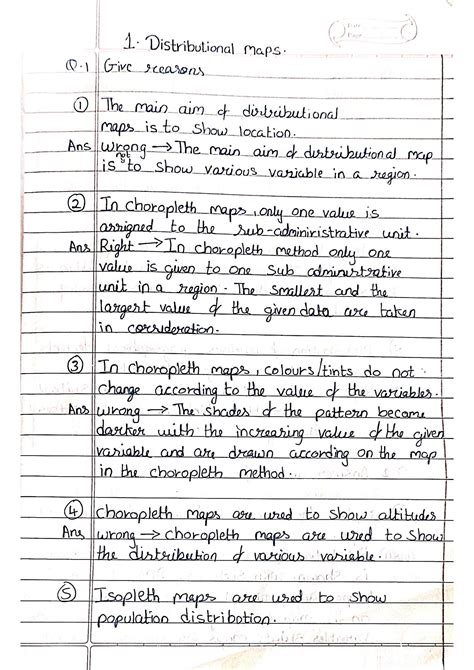 1. Distributional maps.
Q.1 Give reasons
① The main aim of distributional
maps is to show location.
Ans Wrong → The main aim of distributional map
is not to show various variable in a region.
② In choropleth maps, only one value is
assigned to the sub-administrative unit.
Ans Right → In choropleth method only one
value is given to one sub administrative
unit in a region. The smallest and the
largest value of the given data are taken
in consideration.
③ In choropleth maps, colours/tints do not
change according to the value of the variables.
Ans Wrong → The shades of the pattern become
darker with the increasing value of the given
variable and are drawn according on the map
in the choropleth method.
④ Choropleth maps are used to show altitudes
Ans Wrong → choropleth maps are used to show
the distribution of various variable.
⑤ Isopleth maps are used to show
population distribution.